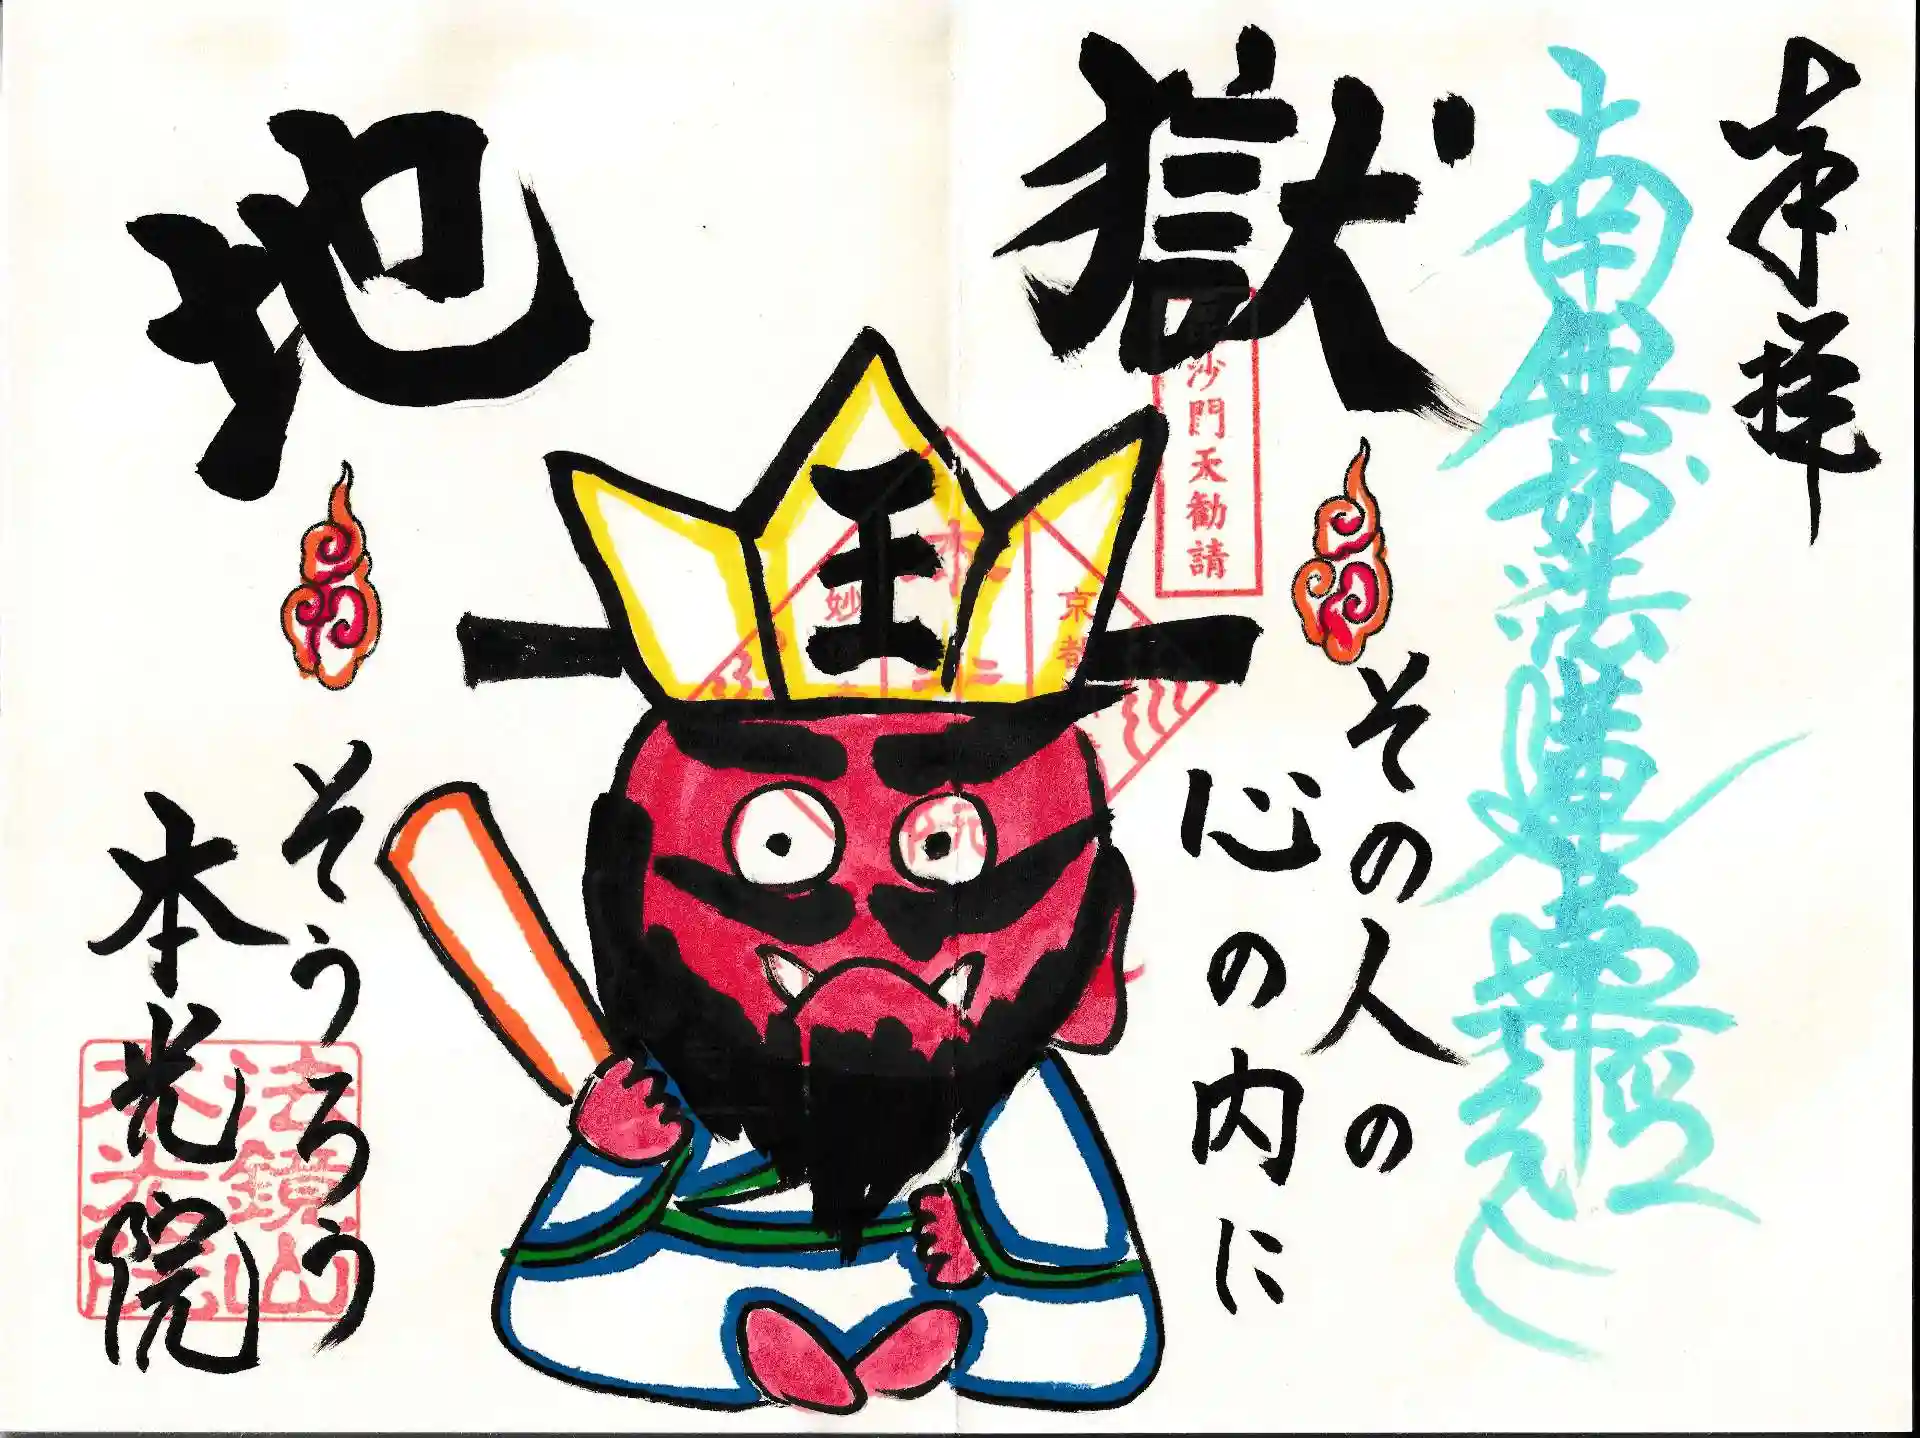 奉拝
南無妙法蓮華経
地獄
その人の
心の内に
そうろう
沙門天勧請
王
京都
妙
本光院
法鏡山
本光院